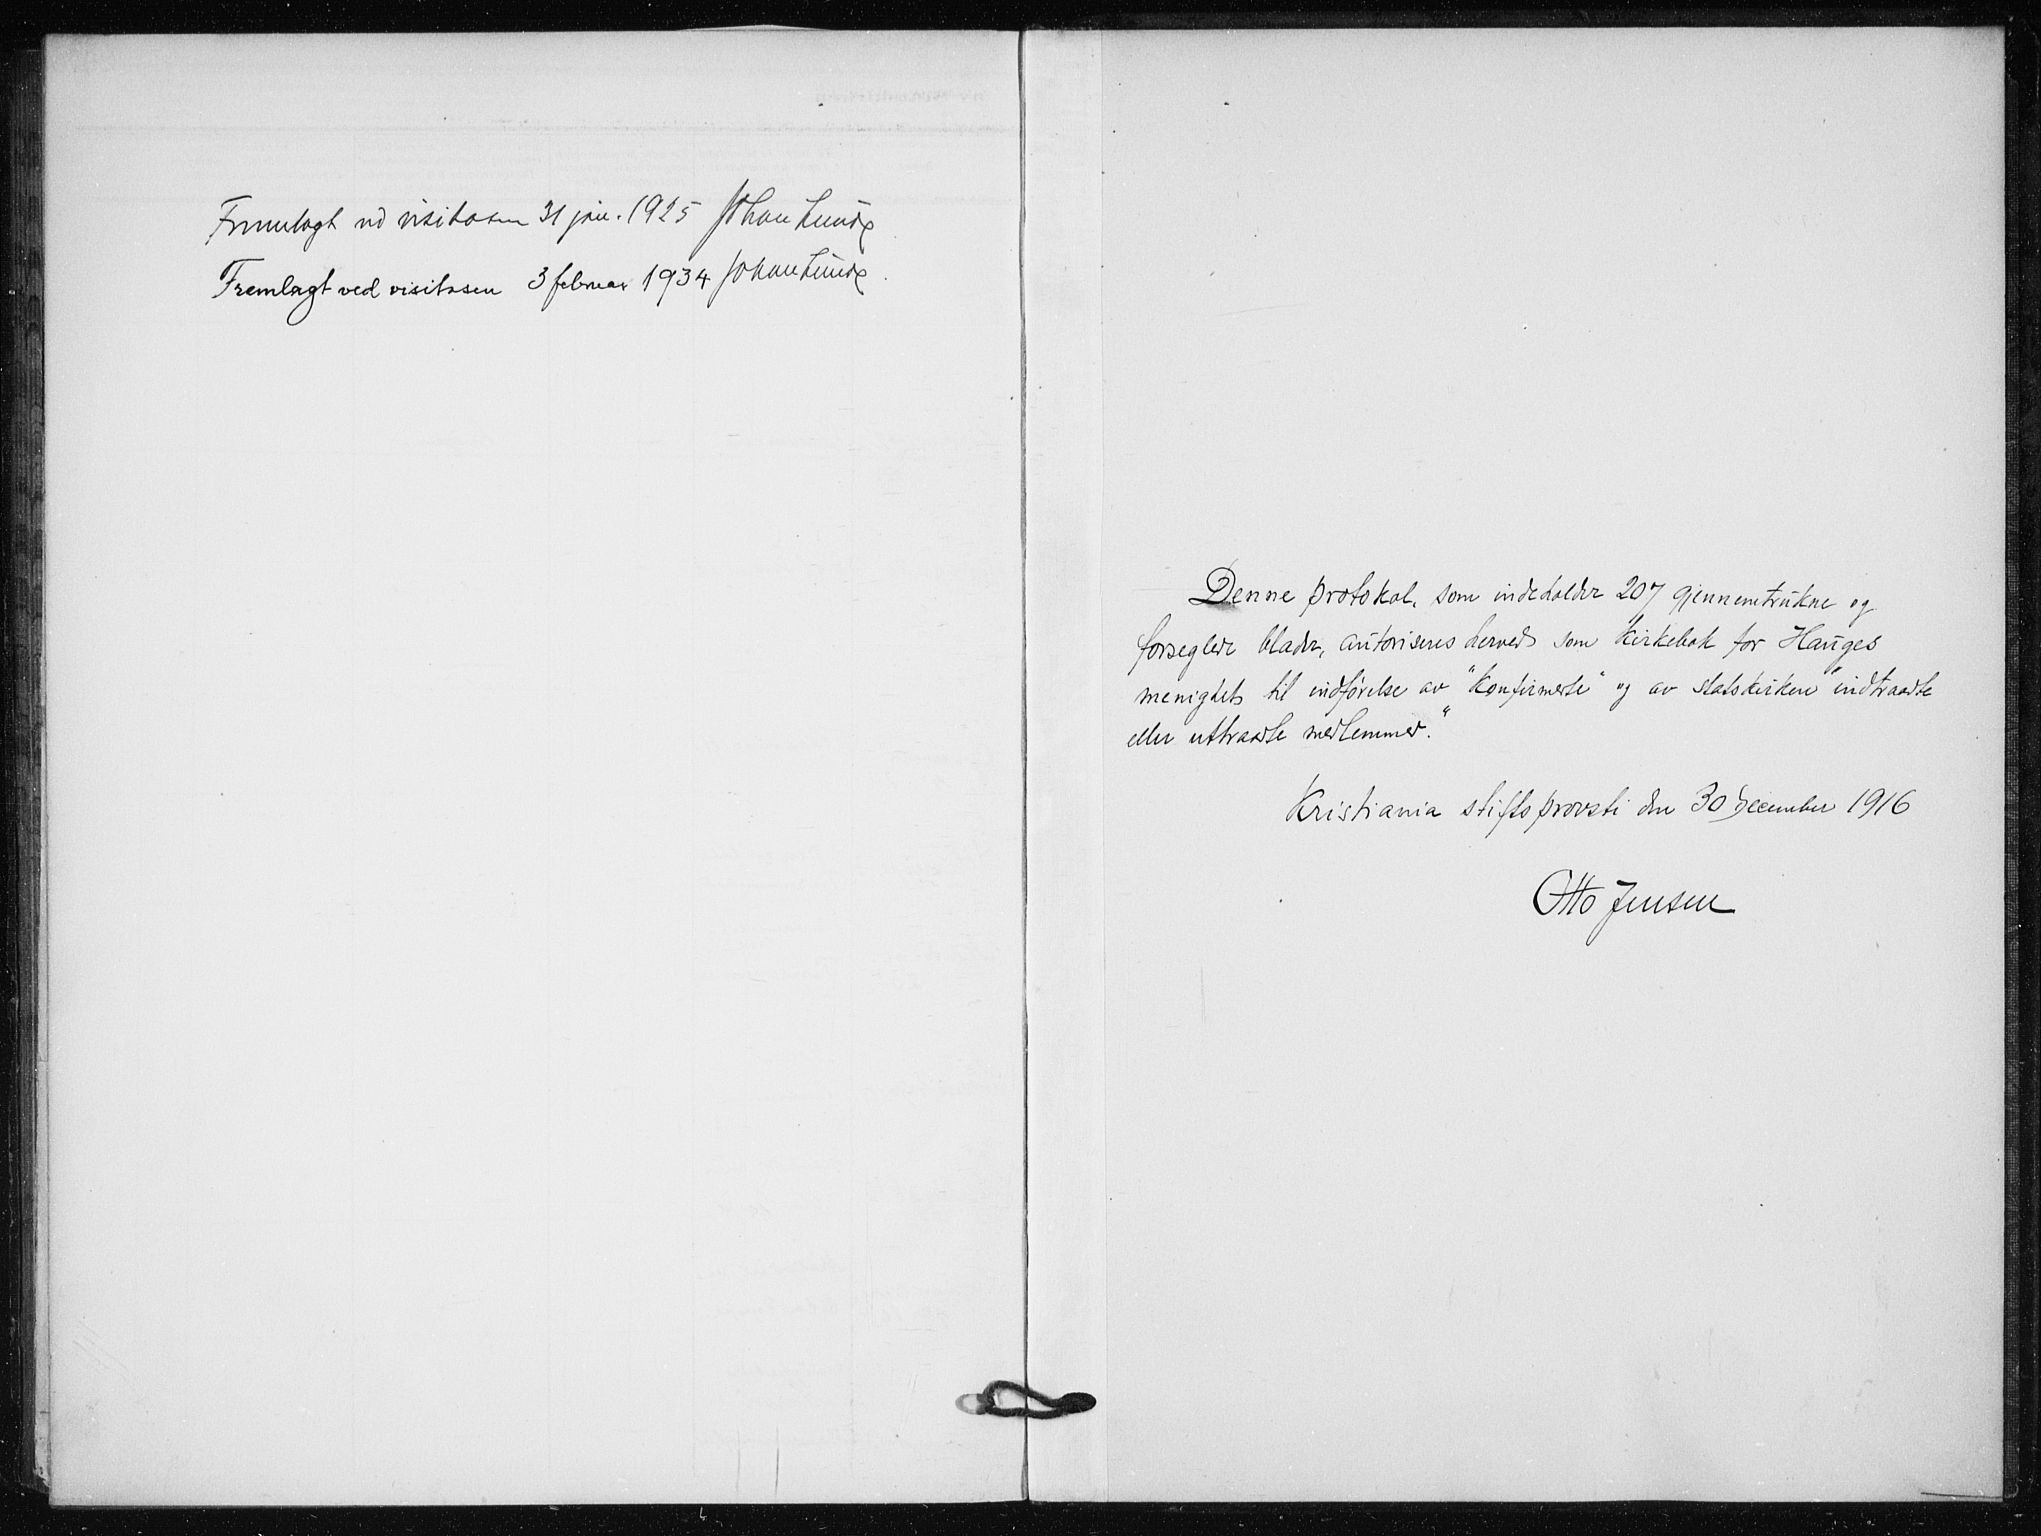 Fremlagt ved visitasen 31 jan. 1925 Johan Lunde
Fremlagt ved visitasen 3 februar 1934 Johan Lunde
Denne protokol, som indeholder 207 gjennemtrukne og
forseglede blader, autoriseres herved som kirkebok for Hauges
menighet til indførelse av "konfirmerte" og av statskirken "indtraadte
eller uttraadte medlemmer."
Kristiania stiftsprovsti den 30 december 1916
Otto Jensen